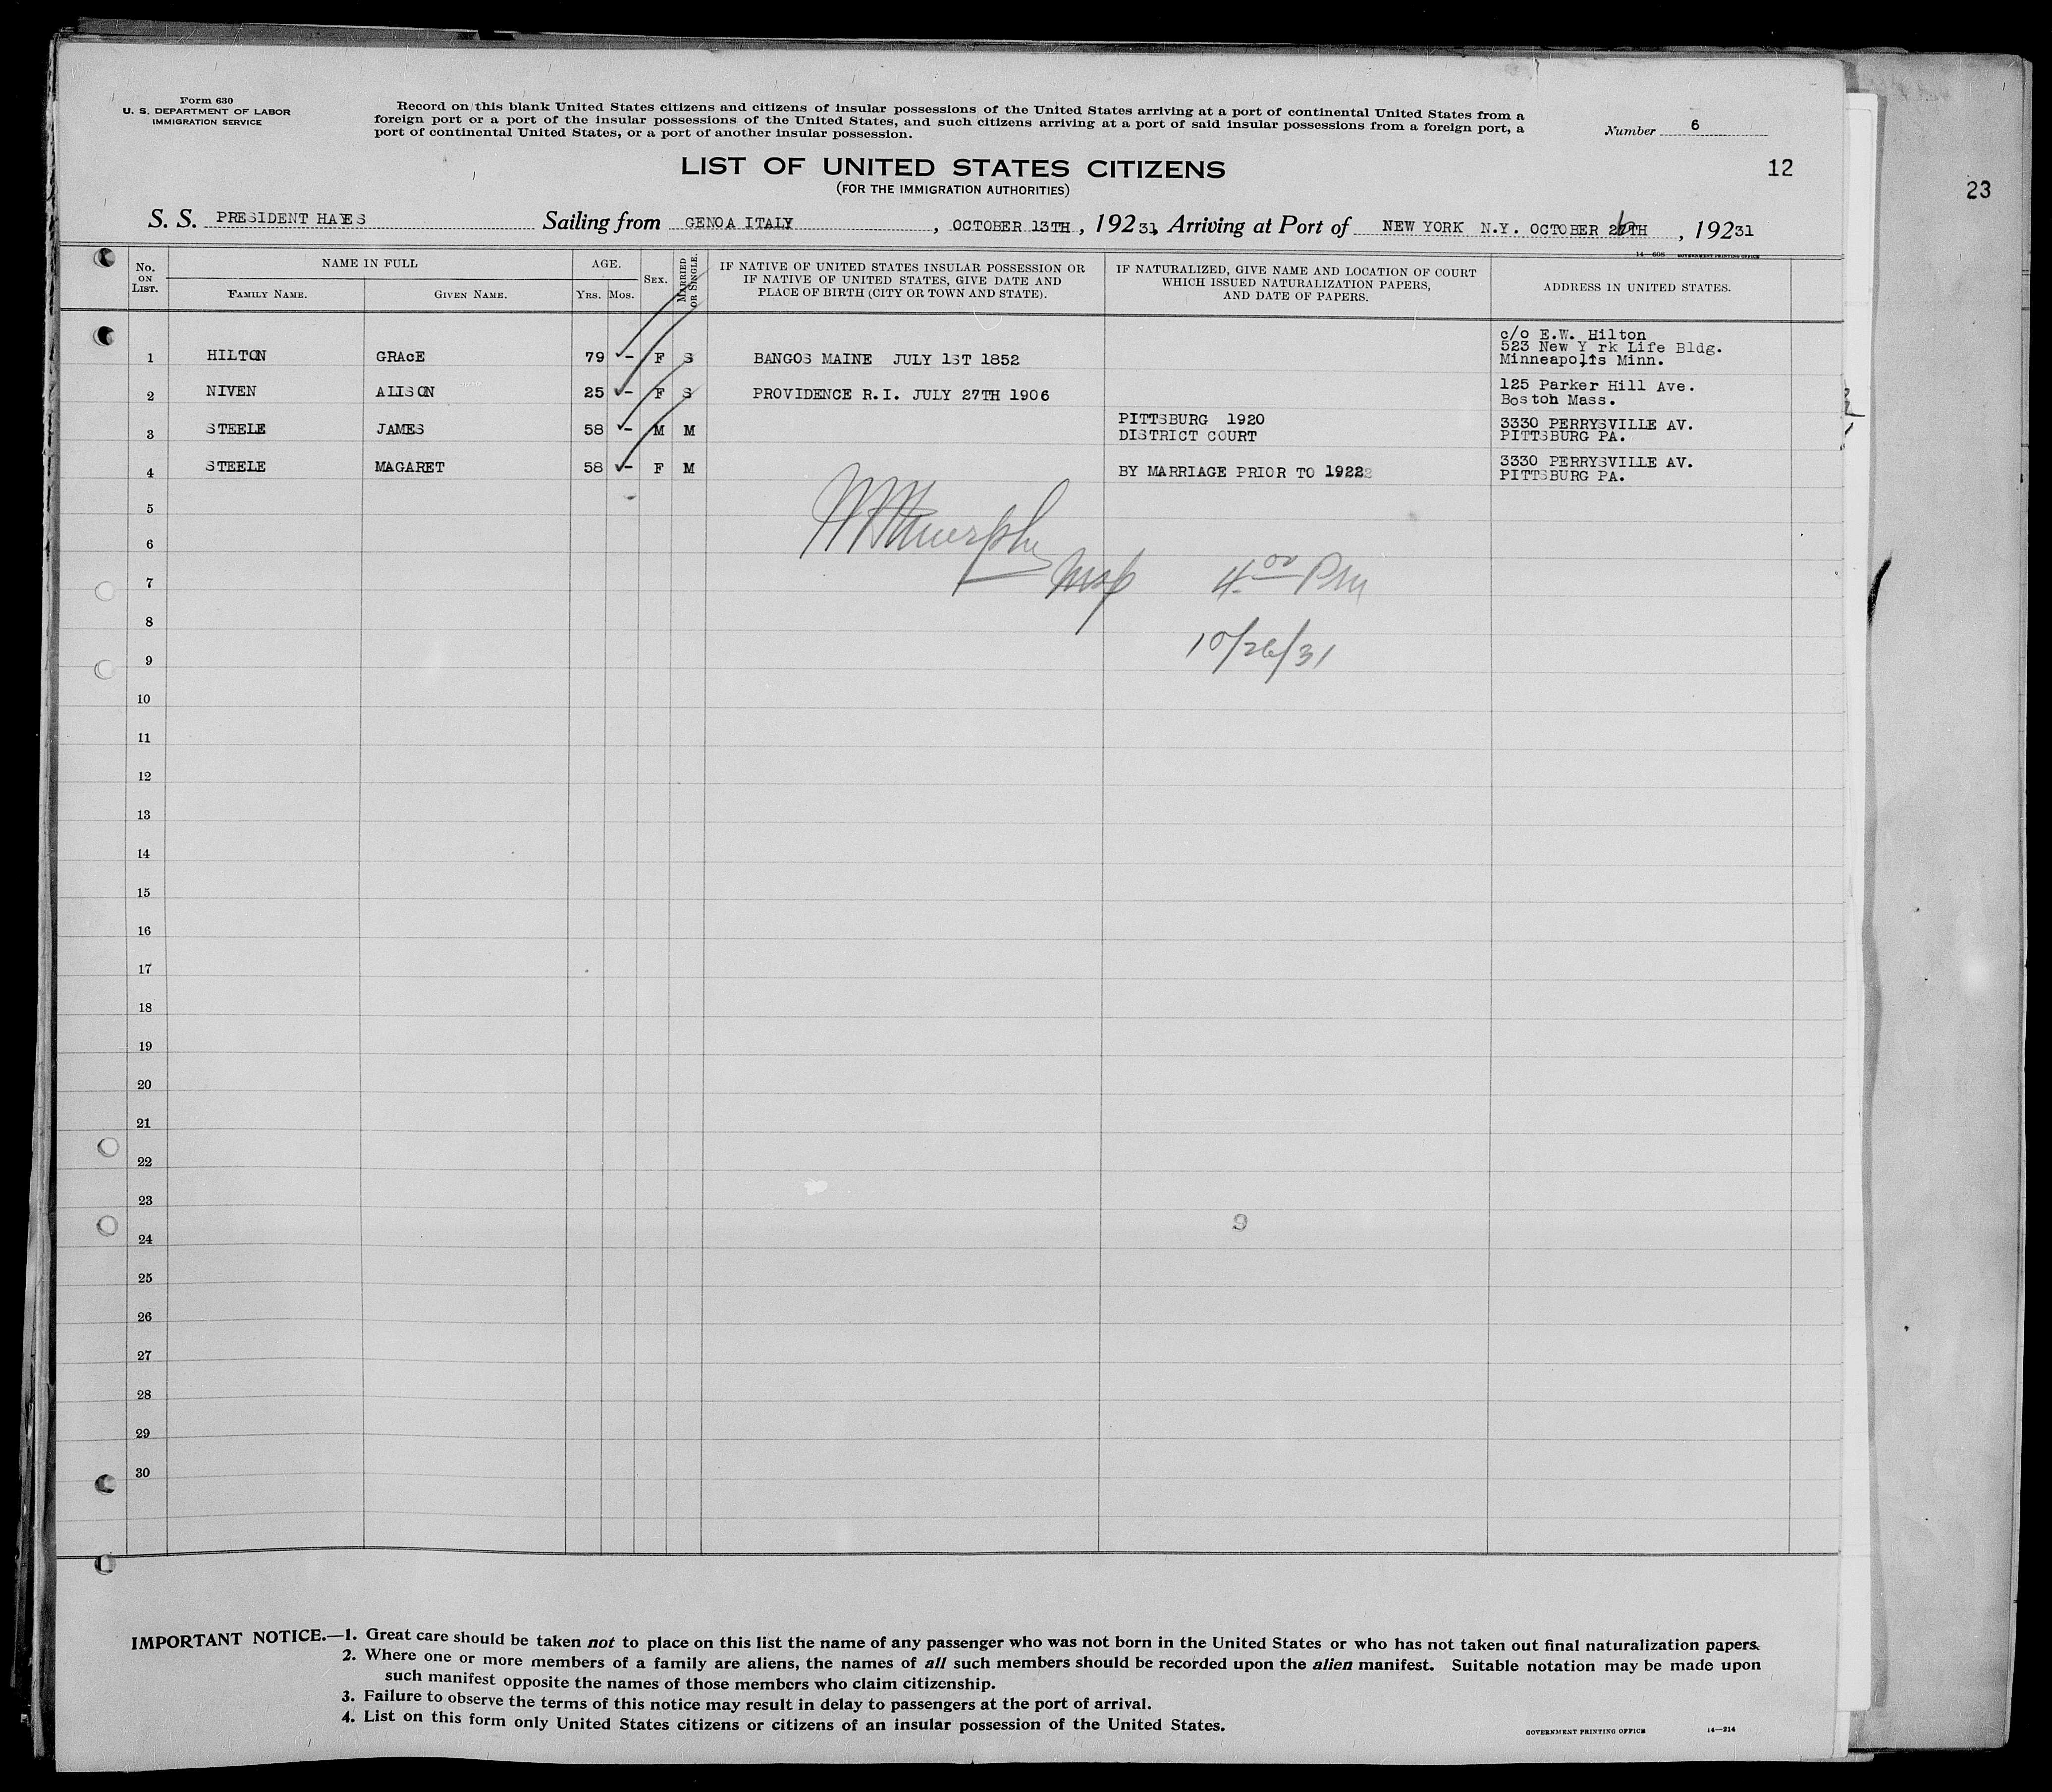 Form 630
U. S. DEPARTMENT OF LABOR
IMMIGRATION SERVICE
Record on this blank United States citizens and citizens of insular possessions of the United States arriving at a port of continental United States from a
foreign port or a port of the insular possessions of the United States, and such citizens arriving at a port of said insular possessions from a foreign port, a
port of continental United States, or a port of another insular possession.
Number 6
LIST OF UNITED STATES CITIZENS
(FOR THE IMMIGRATION AUTHORITIES)
12
23
S. S. PRESIDENT HAYES Sailing from GENOA ITALY, OCTOBER 13TH, 19231, Arriving at Port of NEW YORK N.Y. OCTOBER 26TH, 19231
14—608 GOVERNMENT PRINTING OFFICE
No. ON LIST. NAME IN FULL FAMILY NAME. GIVEN NAME. AGE. Yrs. Mos. SEX. MARRIED OR SINGLE.
IF NATIVE OF UNITED STATES INSULAR POSSESSION OR
IF NATIVE OF UNITED STATES, GIVE DATE AND
PLACE OF BIRTH (CITY OR TOWN AND STATE).
IF NATURALIZED, GIVE NAME AND LOCATION OF COURT
WHICH ISSUED NATURALIZATION PAPERS,
AND DATE OF PAPERS.
ADDRESS IN UNITED STATES.
1 HILTON GRAcE 79 – F S BANGOS MAINE JULY 1ST 1852
c/o E.W. Hilton
523 New Y rk Life Bldg.
Minneapolis Minn.
2 NIVEN ALISON 25 – F S PROVIDENCE R.I. JULY 27TH 1906
125 Parker Hill Ave.
Boston Mass.
3 STEELE JAMES 58 – M M
PITTSBURG 1920
DISTRICT COURT
3330 PERRYSVILLE AV.
PITTSBURG PA.
4 STEELE MAGARET 58 – F M BY MARRIAGE PRIOR TO 1922
3330 PERRYSVILLE AV.
PITTSBURG PA.
5
6
Murphy
7
4 00 PM
8
10/26/31
9
10
11
12
13
14
15
16
17
18
19
20
21
22
23
9
24
25
26
27
28
29
30
IMPORTANT NOTICE.—1. Great care should be taken not to place on this list the name of any passenger who was not born in the United States or who has not taken out final naturalization papers.
2. Where one or more members of a family are aliens, the names of all such members should be recorded upon the alien manifest. Suitable notation may be made upon
such manifest opposite the names of those members who claim citizenship.
3. Failure to observe the terms of this notice may result in delay to passengers at the port of arrival.
4. List on this form only United States citizens or citizens of an insular possession of the United States.
GOVERNMENT PRINTING OFFICE 14—214